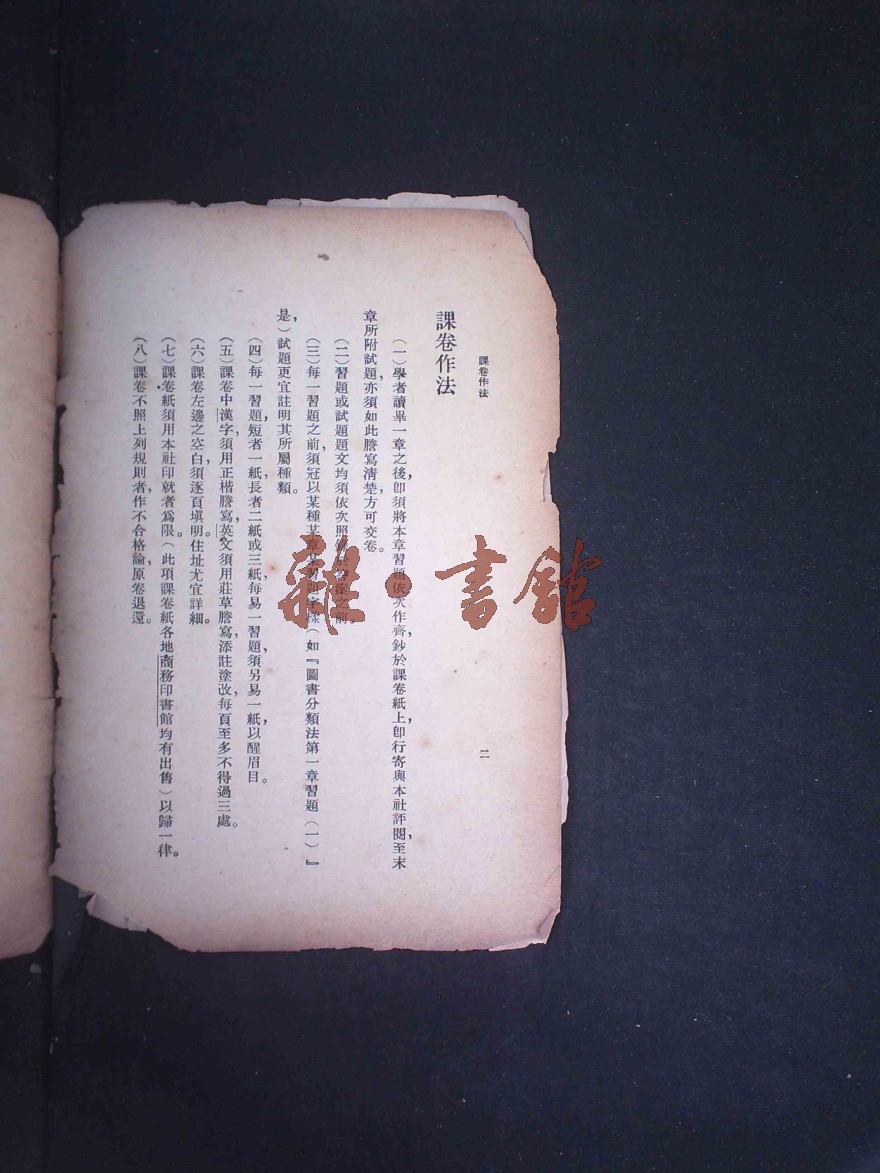 課卷作法
二
課卷作法
（一）學者讀畢一章之後，卽須將本章習題依次作齊鈔於課卷紙上，卽行寄與本社評閱至末
章所附試題，亦須如此謄寫清楚，方可交卷。
（二）習題或試題題文均須依次照之前。
（三）每一習題之前，須冠以某種某章某習題字樣（如『圖書分類法第一章習題（一）』
是，）試題更宜註明其所屬種類。
（四）每一習題，短者一紙，長者二紙或三紙，每易一習題，須另易一紙，以醒眉目。
（五）課卷中漢字，須用正楷謄寫，英文須用莊草謄寫，添註塗改，每頁至多不得過三處。
（六）課卷左邊之空白須逐頁填明。住址尤宜詳細。
（七）課卷紙須用本社印就者爲限。（此項課卷紙各地商務印書館均有出售）以歸一律。
（八）課卷不照上列規則者，作不合格論，原卷退還。
雜·書館